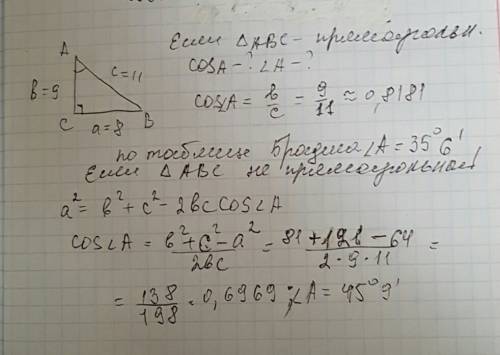 Если △ABC - прямоугольн.
A
cosA - ? ∠A - ?
c=11
b=9
cos∠A = b/c = 9/11 ≈ 0,8181
C
a=8
B
по таблице Брадиса ∠A = 35°6'
Если △ABC не прямоугольной
a² = b² + c² - 2bc cos∠A
cos∠A = (b² + c² - a²)/(2bc) = (81 + 121 - 64)/(2·9·11) =
= 138/198 ≈ 0,6969; ∠A = 45°9'